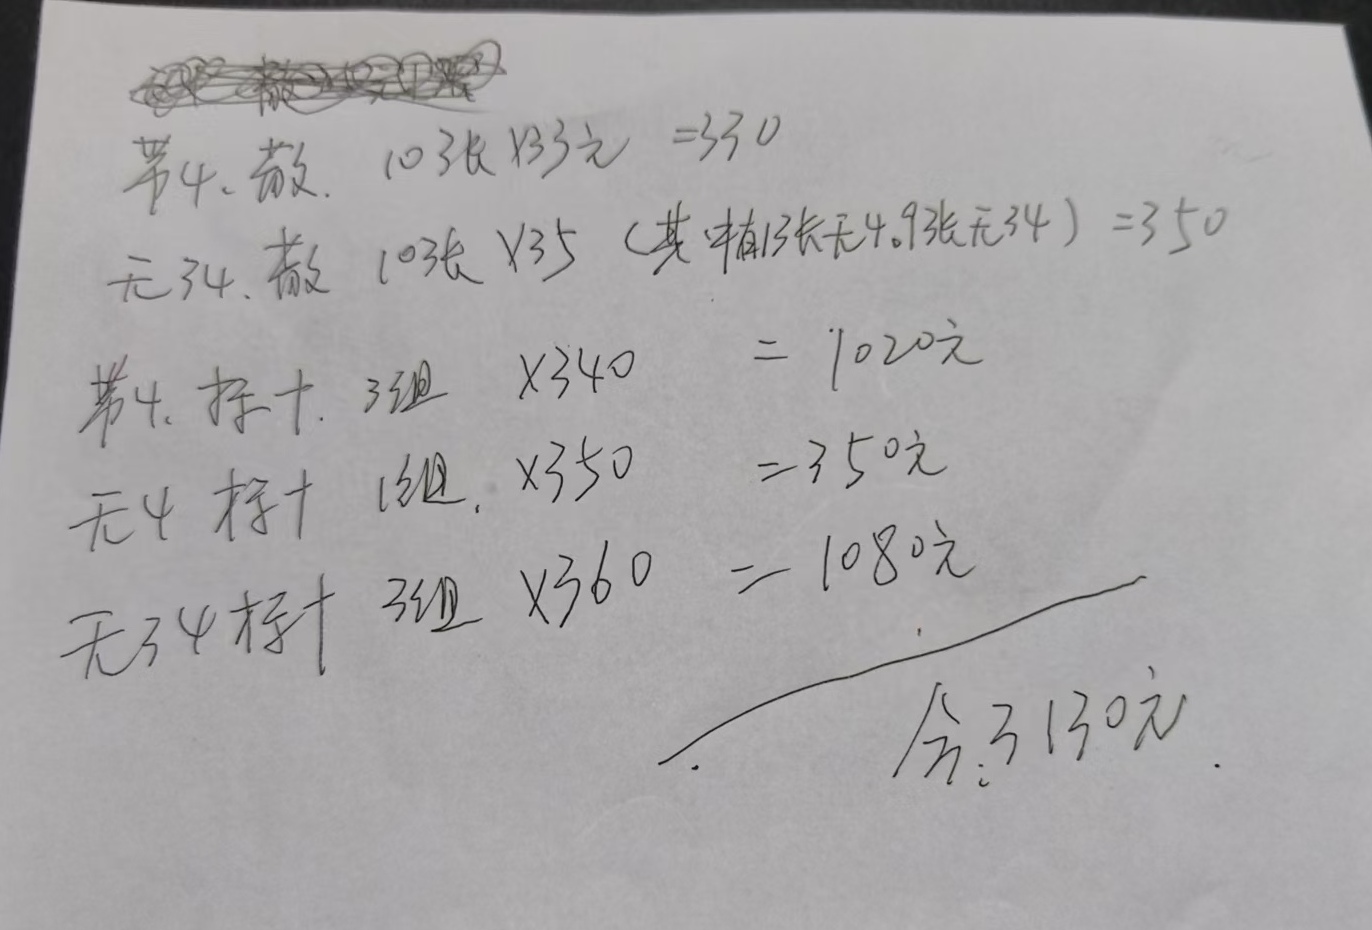 带4、散. 10张×33元 =330
无34、散 10张×35 (其中有1张无4。9张无34) =350
带4、标十. 3组 ×340 = 1020元
无4 标十 1组. ×350 =350元
无34标十 3组 ×360 = 1080元
合:3130元.